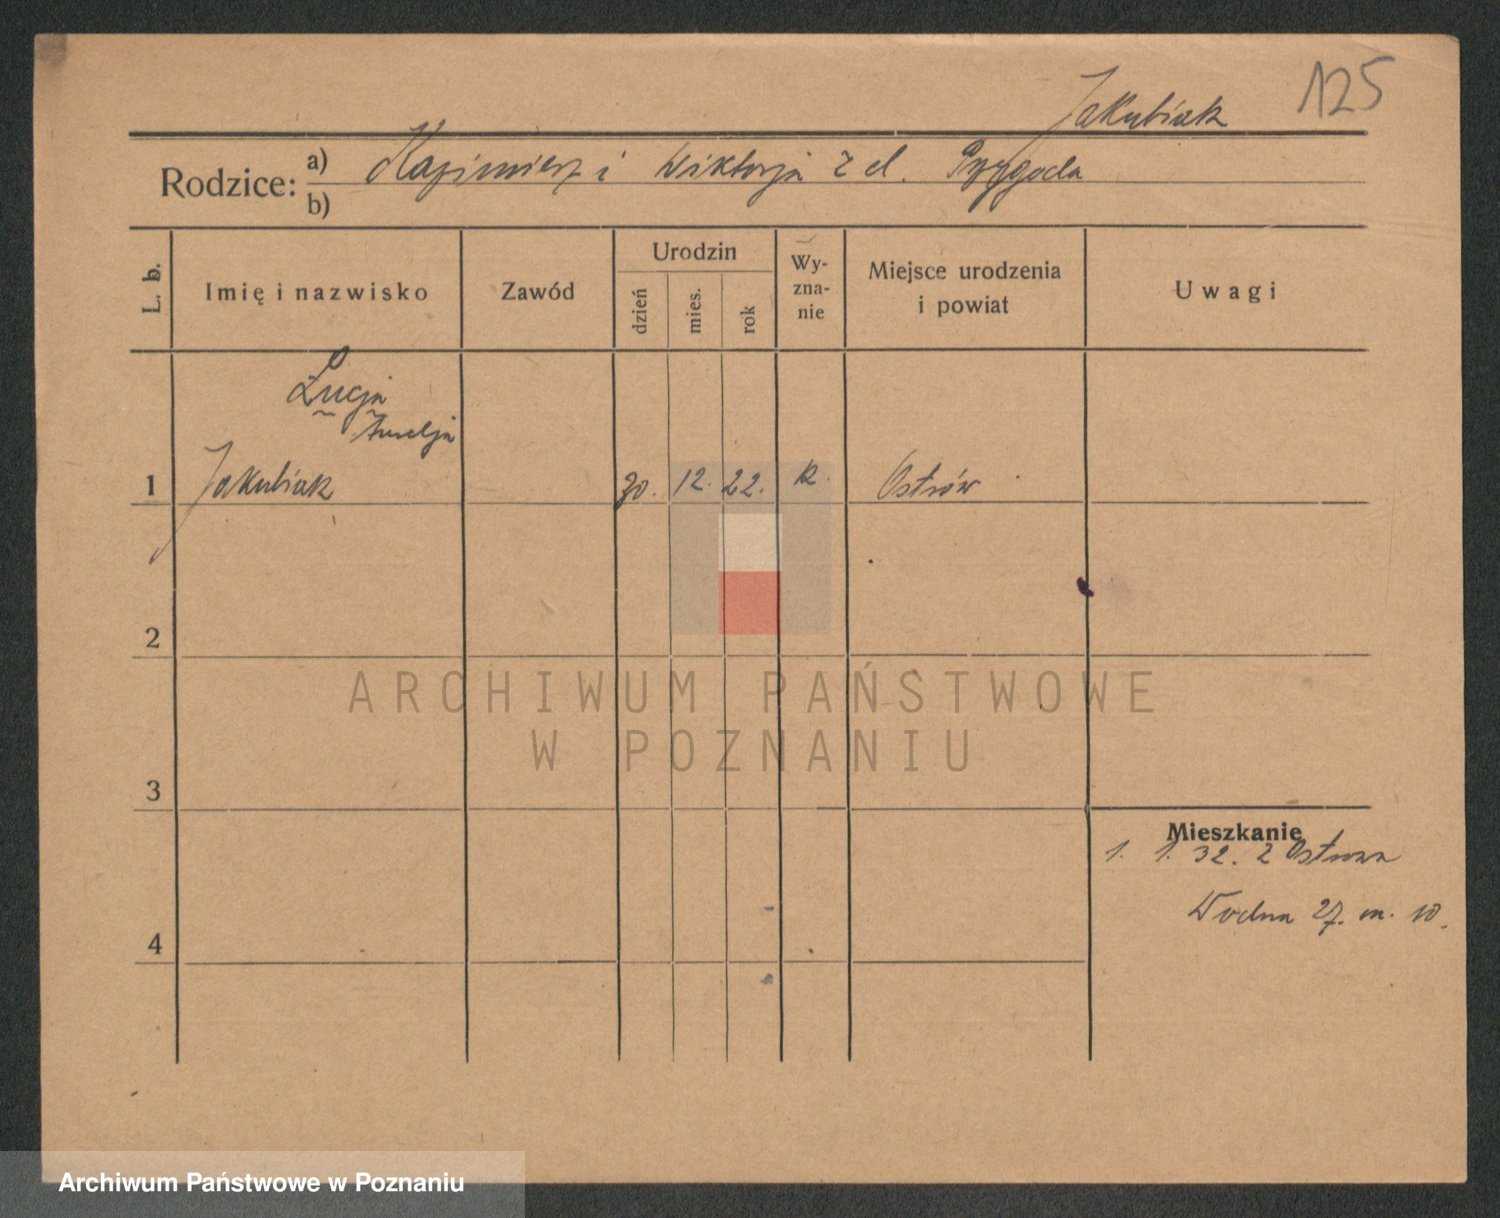 125
Jakubiak
Rodzice: a) Kazimierz i Wiktorja z d. Przygoda
b)
L. b.
Imię i nazwisko
Zawód
Urodzin
dzień
mies.
rok
Wy-
zna-
nie
Miejsce urodzenia
i powiat
Uwagi
Łucja
Amelja
1 Jakubiak 30. 12. 22. k. Ostrów
2
ARCHIWUM PAŃSTWOWE
W POZNANIU
3
Mieszkanie
1. 1. 32. z Ostrowa
4 Wodna 27. m. 10.
Archiwum Państwowe w Poznaniu